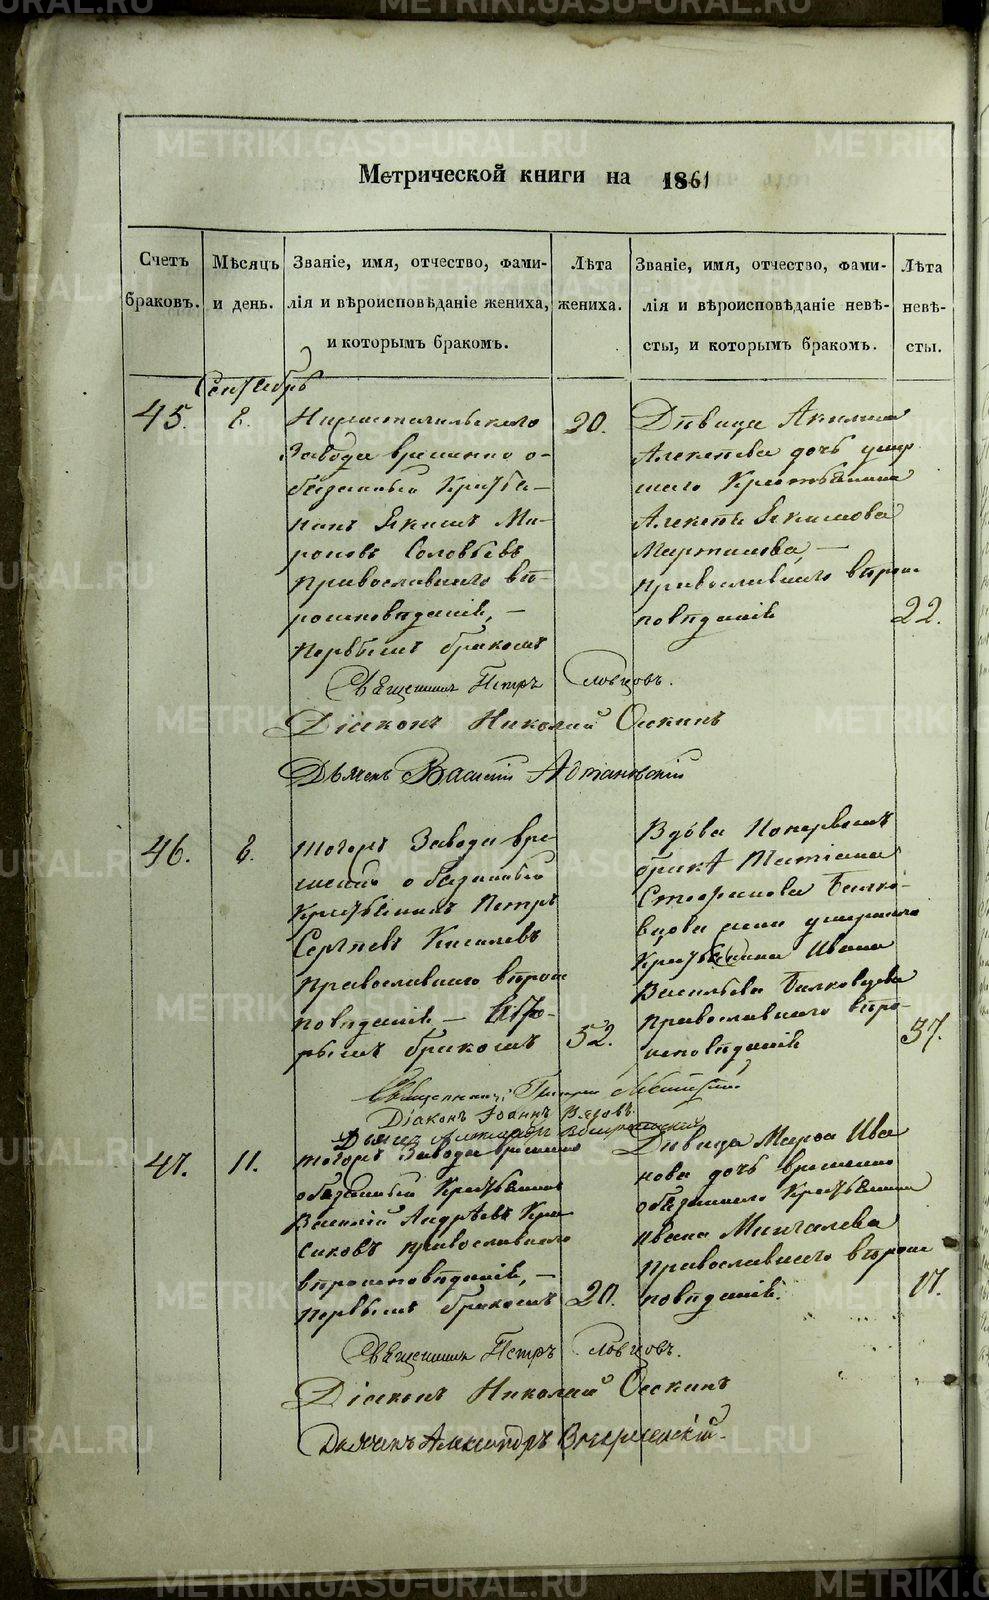 Метрической книги на 1861
Счетъ браковъ.
Мѣсяцъ и день.
Званіе, имя, отчество, фами-
лія и вѣроисповѣданіе жениха,
и которымъ бракомъ.
Лѣта жениха.
Званіе, имя, отчество, фами-
лія и вѣроисповѣданіе невѣ-
сты, и которымъ бракомъ.
Лѣта невѣ-
сты.
Сентябрь
45.
8.
Завода временно о-
бязанный Крестья-
нинъ Якимъ Ми-
роновъ Соловьевъ
Православнаго вѣ-
роисповѣданія, —
Первымъ бракомъ
20.
Дѣвица Акилина
Алексѣева дочь умер
шаго Крестьянина
Алексѣя Якимова
Мартинова, —
Православнаго вѣрои
повѣданія
22.
Священникъ Петръ Словцовъ.
Діаконъ Николай Оскинъ
Дьячекъ Василій
46.
8.
тогожъ Завода вре-
менно обязанный
Крестьянинъ Петръ
Сергѣевъ Киселевъ
Православнаго вѣрои
повѣданія — Вто-
рымъ бракомъ
52.
Вдова Поперьвомъ
бракѣ Татіана
Стефанова
жена умершаго
Крестьянина Ивана
Васильева
Православнаго вѣро-
исповѣданія
37.
Священникъ
Діаконъ Іоаннъ
47.
11.
тогожъ Завода временно
обязанный Крестьянинъ
Василій Андрѣевъ Кра
сиковъ православнаго
вѣроисповѣданія, —
Первымъ бракомъ
20.
Дѣвица Марѳа Ива
нова дочь временно
обязаннаго Крестьянина
Ивана Мингалева
Православнаго вѣрои
повѣданія.
17.
Священникъ Петръ Словцовъ.
Діаконъ Николай Оскинъ
Дьячекъ Александръ
METRIKI.GASO-URAL.RU